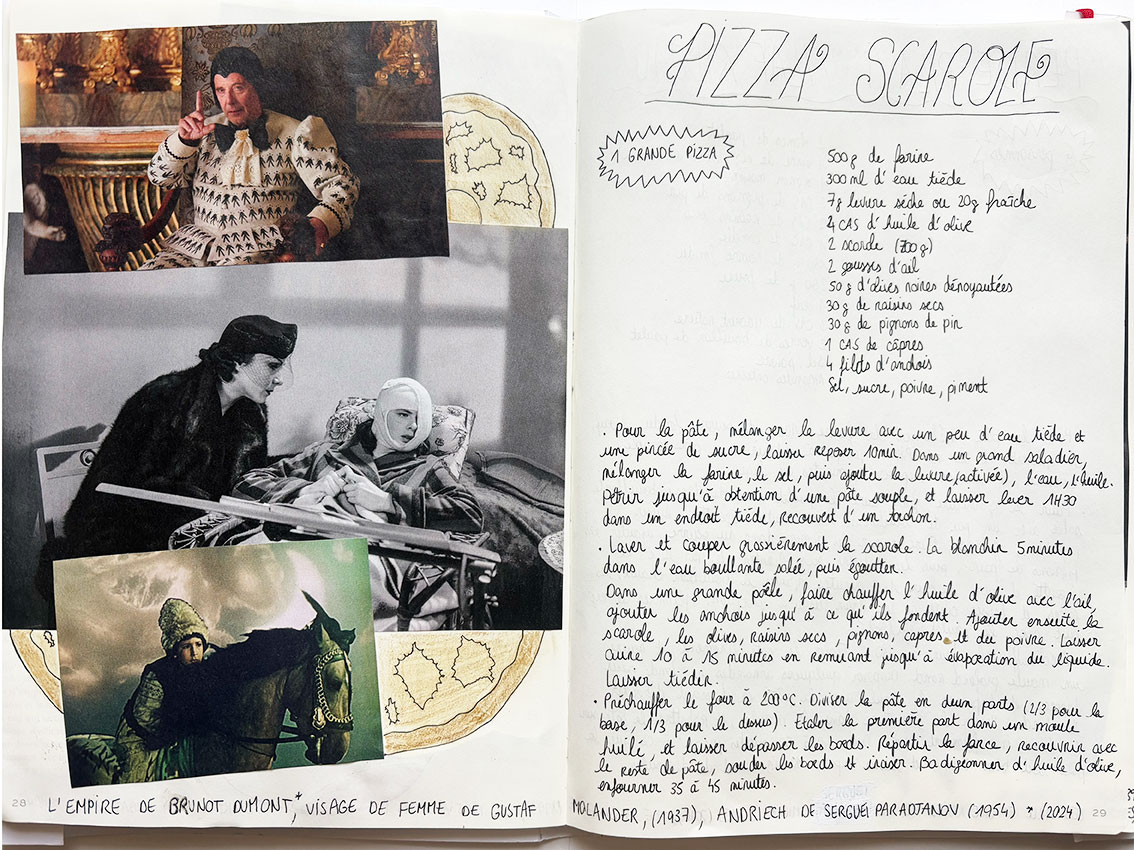 PIZZA SCAROLE
1 GRANDE PIZZA
500g de farine
300ml d'eau tiède
7g levure sèche ou 20g fraîche
4 CAS d'huile d'olive
2 scarole (700g)
2 gousses d'ail
50g d'olives noires dénoyautées
30g de raisins secs
30g de pignons de pin
1 CAS de câpres
4 filets d'anchois
Sel, sucre, poivre, piment
. Pour la pâte, mélanger la levure avec un peu d'eau tiède et
une pincée de sucre, laisser reposer 10min. Dans un grand saladier,
mélanger la farine, le sel, puis ajouter la levure (activée), l'eau, l'huile.
Pétrir jusqu'à obtention d'une pâte souple, et laisser lever 1H30
dans un endroit tiède, recouvert d'un torchon.
. Laver et couper grossièrement la scarole. La blanchir 5minutes
dans l'eau bouillante salée, puis égoutter.
Dans une grande poêle, faire chauffer l'huile d'olive avec l'ail,
ajouter les anchois jusqu'à ce qu'ils fondent. Ajouter ensuite la
scarole, les olives, raisins secs, pignons, capres et du poivre. Laisser
cuire 10 à 15 minutes en remuant jusqu'à évaporation du liquide.
Laisser tiédir.
. Préchauffer le four à 200°C. Diviser la pâte en deux parts (2/3 pour la
base, 1/3 pour le dessus). Etaler la première part dans un moule
huilé, et laisser dépasser les bords. Répartir la farce, recouvrir avec
le reste de pâte, souder les bords et inciser. Badigeonner d'huile d'olive,
enfourner 35 à 45 minutes.
28 L'EMPIRE DE BRUNOT DUMONT*, VISAGE DE FEMME DE GUSTAF MOLANDER, (1937), ANDRIECH DE SERGUEÏ PARADJANOV (1954) * (2024) 29